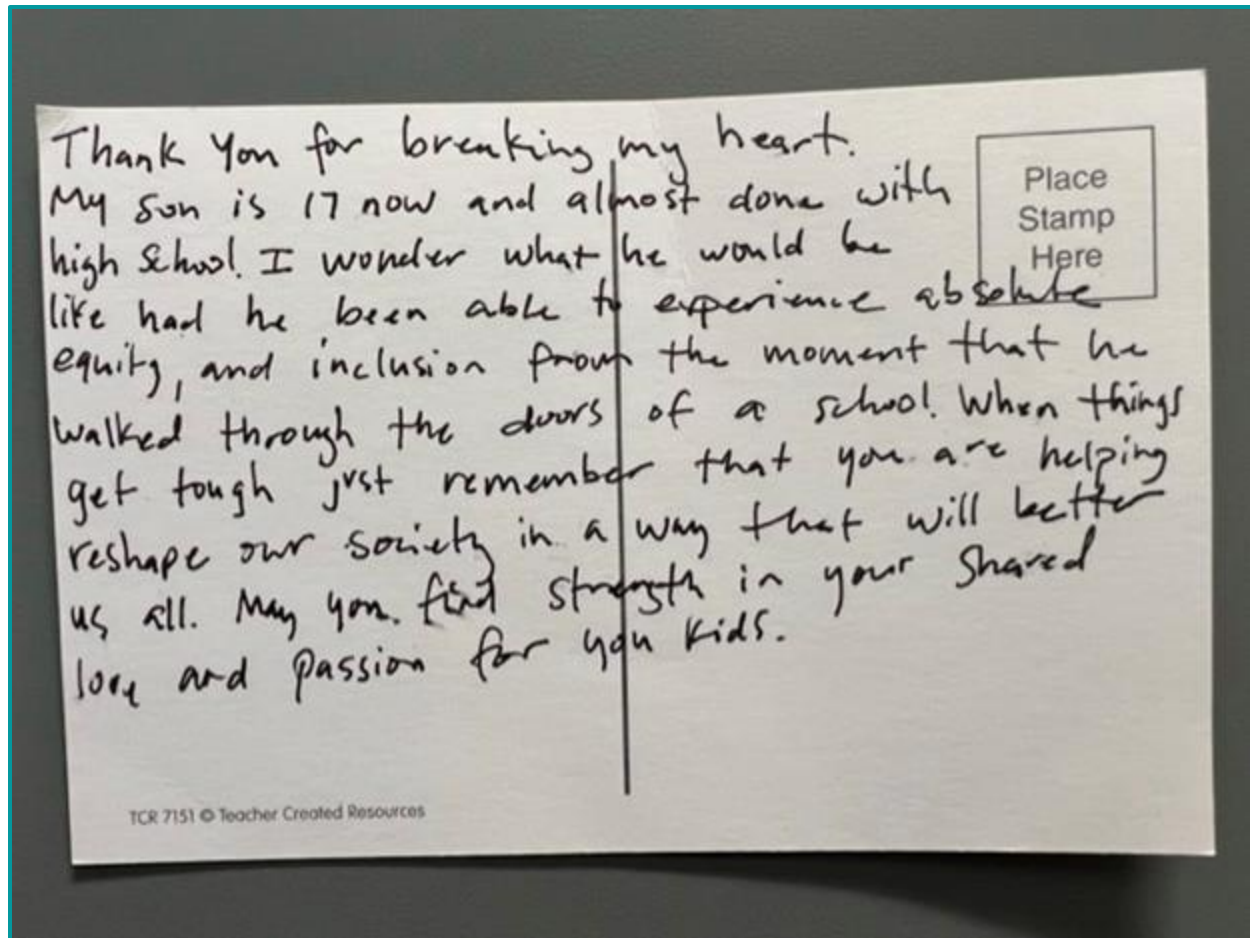 Thank You for breaking my heart.
My son is 17 now and almost done with
high School. I wonder what he would be
like had he been able to experience absolute
equity, and inclusion from the moment that he
walked through the doors of a school. When things
get tough just remember that you are helping
reshape our society in a way that will better
us all. May you find strength in your Shared
love and passion for you kids.
Place
Stamp
Here
TCR 7151 © Teacher Created Resources